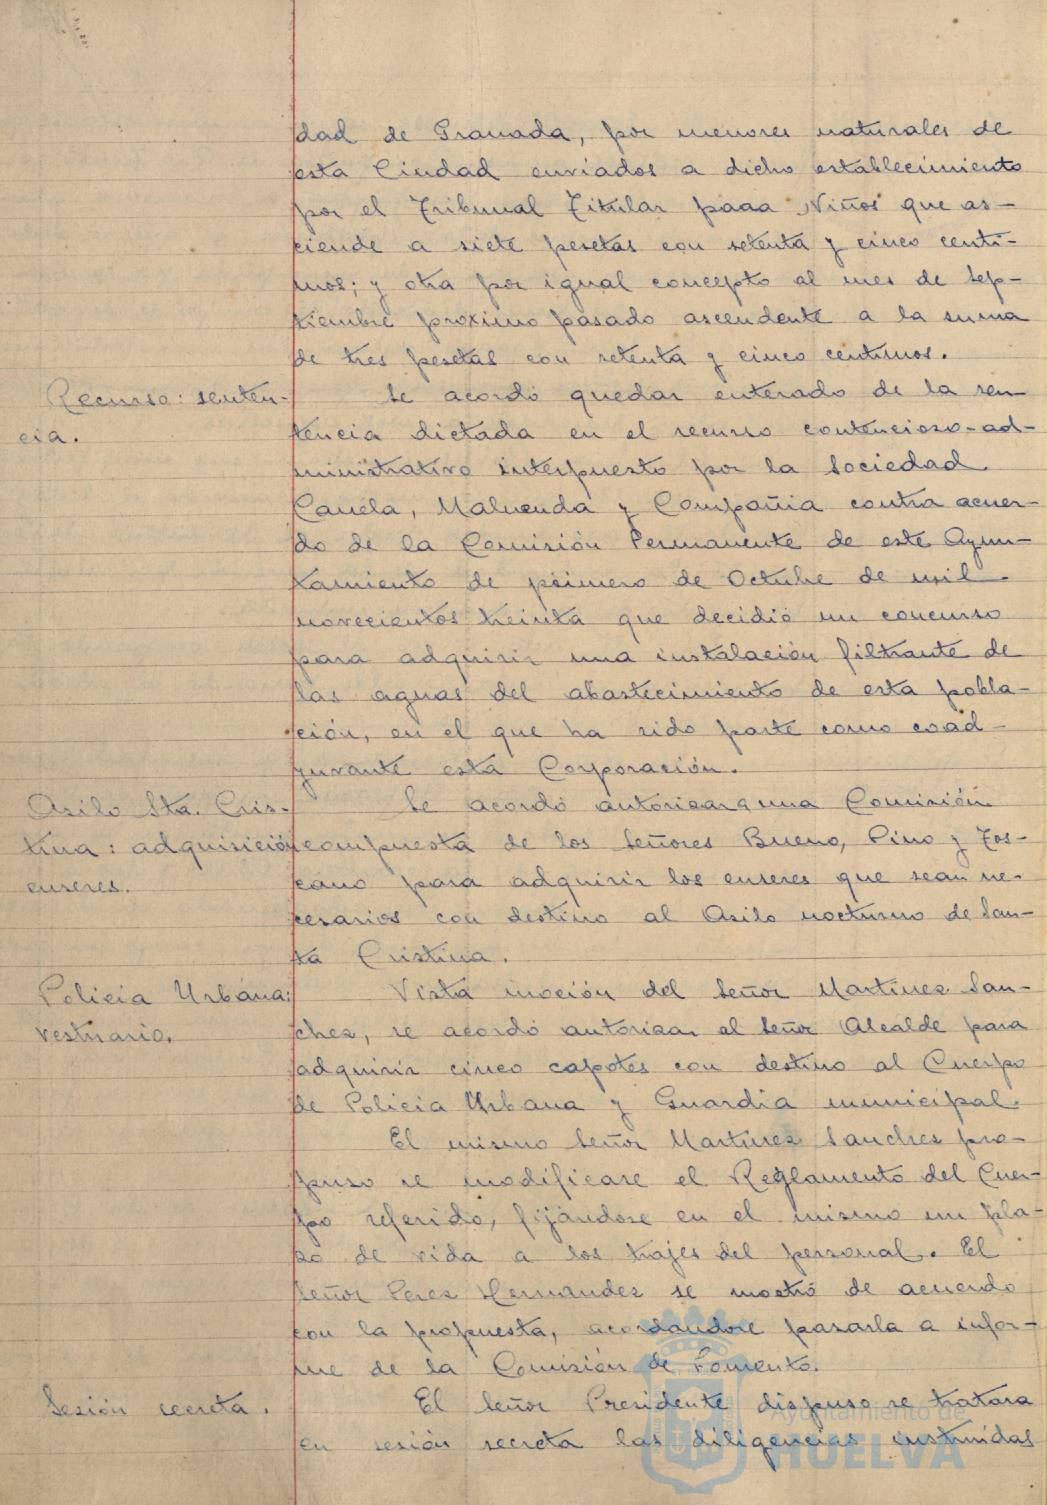 dad de Granada, por menores naturales de
esta Ciudad enviados a dicho establecimiento
por el Tribunal Titular paaa Niños que as-
ciende a siete pesetas con setenta y cinco centi-
mos; y otra por igual concepto al mes de Sep-
tiembre proximo pasado ascendente a la suma
de tres pesetas con setenta y cinco centimos.
Recurso: senten-
cia.
Se acordó quedar enterado de la sen-
tencia dictada en el recurso contencioso-ad-
ministrativo interpuesto por la Sociedad
Canela, Maluenda y Compañia contra acuer-
do de la Comisión Permanente de este Ayun-
tamiento de primero de Octubre de mil
novecientos treinta que decidió un concurso
para adquirir una instalación filtrante de
las aguas del abastecimiento de esta pobla-
ción, en el que ha sido parte como coad-
yuvante esta Corporación.
Asilo Sta. Cris-
tina: adquisición
enseres.
Se acordó autorizar a una Comisión
compuesta de los Señores Bueno, Pino y Tos-
cano para adquirir los enseres que sean ne-
cesarios con destino al Asilo nocturno de San-
ta Cristina.
Policia Urbana:
vestuario.
Vista moción del Señor Martinez San-
chez, se acordó autorizar al Señor Alcalde para
adquirir cinco capotes con destino al Cuerpo
de Policia Urbana y Guardia municipal.
El mismo Señor Martinez Sanchez pro-
puso se modificase el Reglamento del Cuer-
po referido, fijándose en el mismo un pla-
zo de vida a los trajes del personal. El
Señor Perez Hernandez se mostró de acuerdo
con la propuesta, acordandose pasarla a infor-
me de la Comisión de Fomento.
Sesión secreta.
El Señor Presidente dispuso se tratara
en sesión secreta las diligencias instruidas
Ayuntamiento de
HUELVA